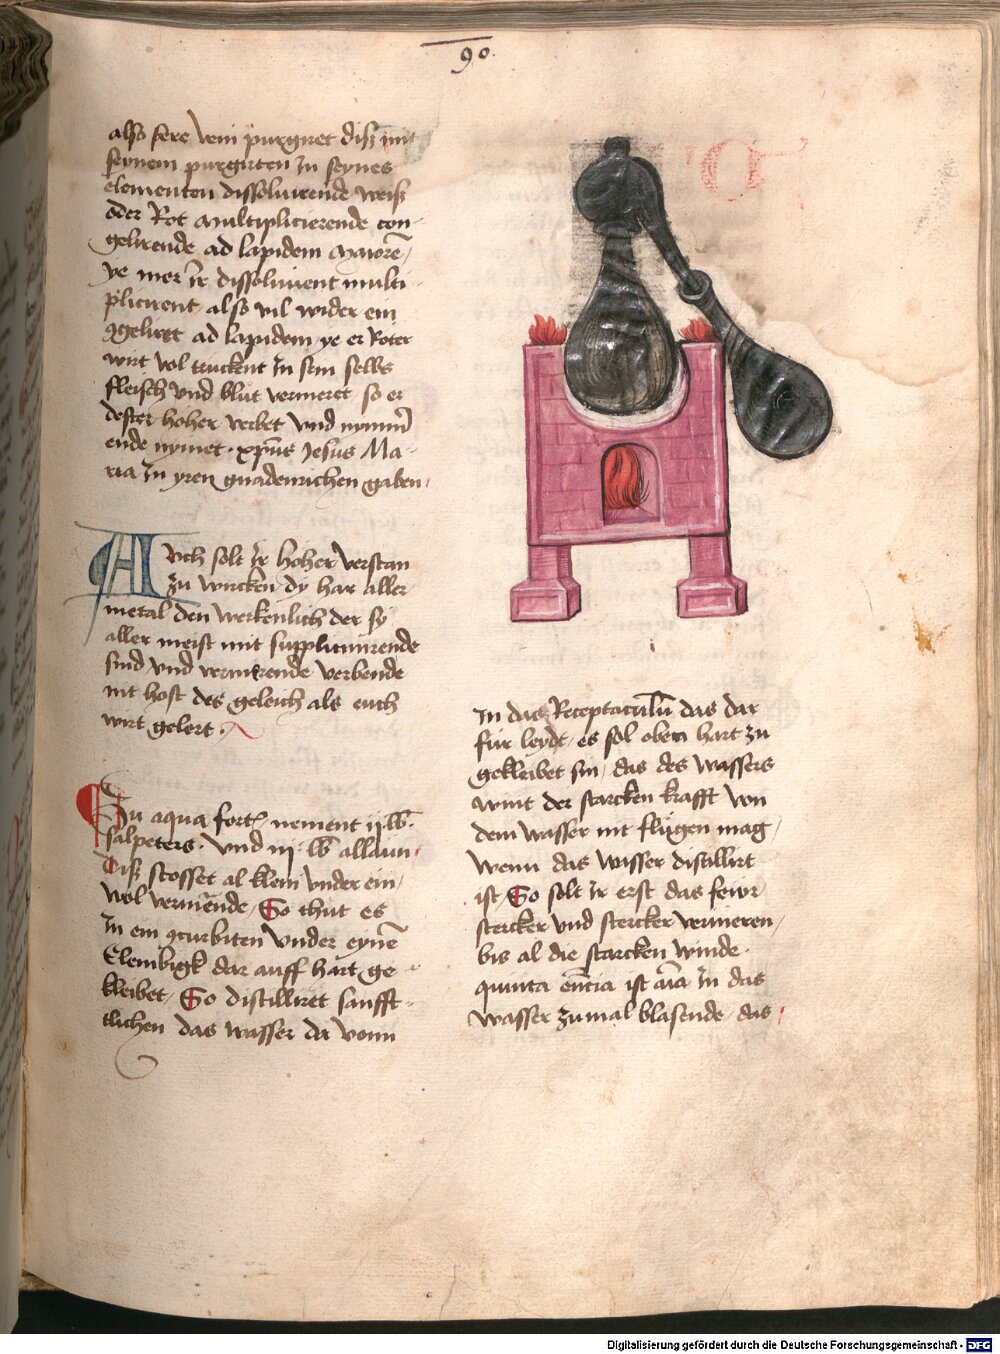 90.
also fere vein purgiret diß mit
seynem purgirten in seynes
elementen dissoluirende weiß
oder Rot multiplicierende con-
gelirende ad lapidem maiorē,
ye mer ir dissoluirent multi-
plicirent also vil wider ein
ꝯgeliret ad lapidem ye er Roter
wirt vol truckent in sein selbs
fleisch vnd blut vermeret, so er
dester hoher verbet vnd nymm̄
ende nymet · xp̄us Jesus Ma-
ria in yren gnadenrichen gaben
Auch solt ir hoher verstan
zu wircken dy har aller
metal den werkenlich der sy
aller meist mit supplimirende
sind vnd vermerende verbende
nit host des geleich als euch
wirt gelert.
Zu aqua fort nement ij lb.
salpeters. vnd iij lb allaun
Diß stosset al klein vnder ein,
wol vermēende, So thut es
in ein ꝯcurbiten vnder eynē
Elembigk dar auff hart ge-
kleibet, So distilliret sanfft-
tlichen das wasser da vonn
in das Receptaculū das dar
fur leydt, es sol oben hart zu
gekleibet sin, das des wassers
wint der starcken krafft von
dem wasser nit flugen mag,
wenn das wasser distillirt
ist, So solt ir erst das fewr
stercker vnd stercker vermeren,
bis al die starcken winde.
quinta eēncia ist aīa in das
wasser zumal blasende, das
Digitalisierung gefördert durch die Deutsche Forschungsgemeinschaft - DFG